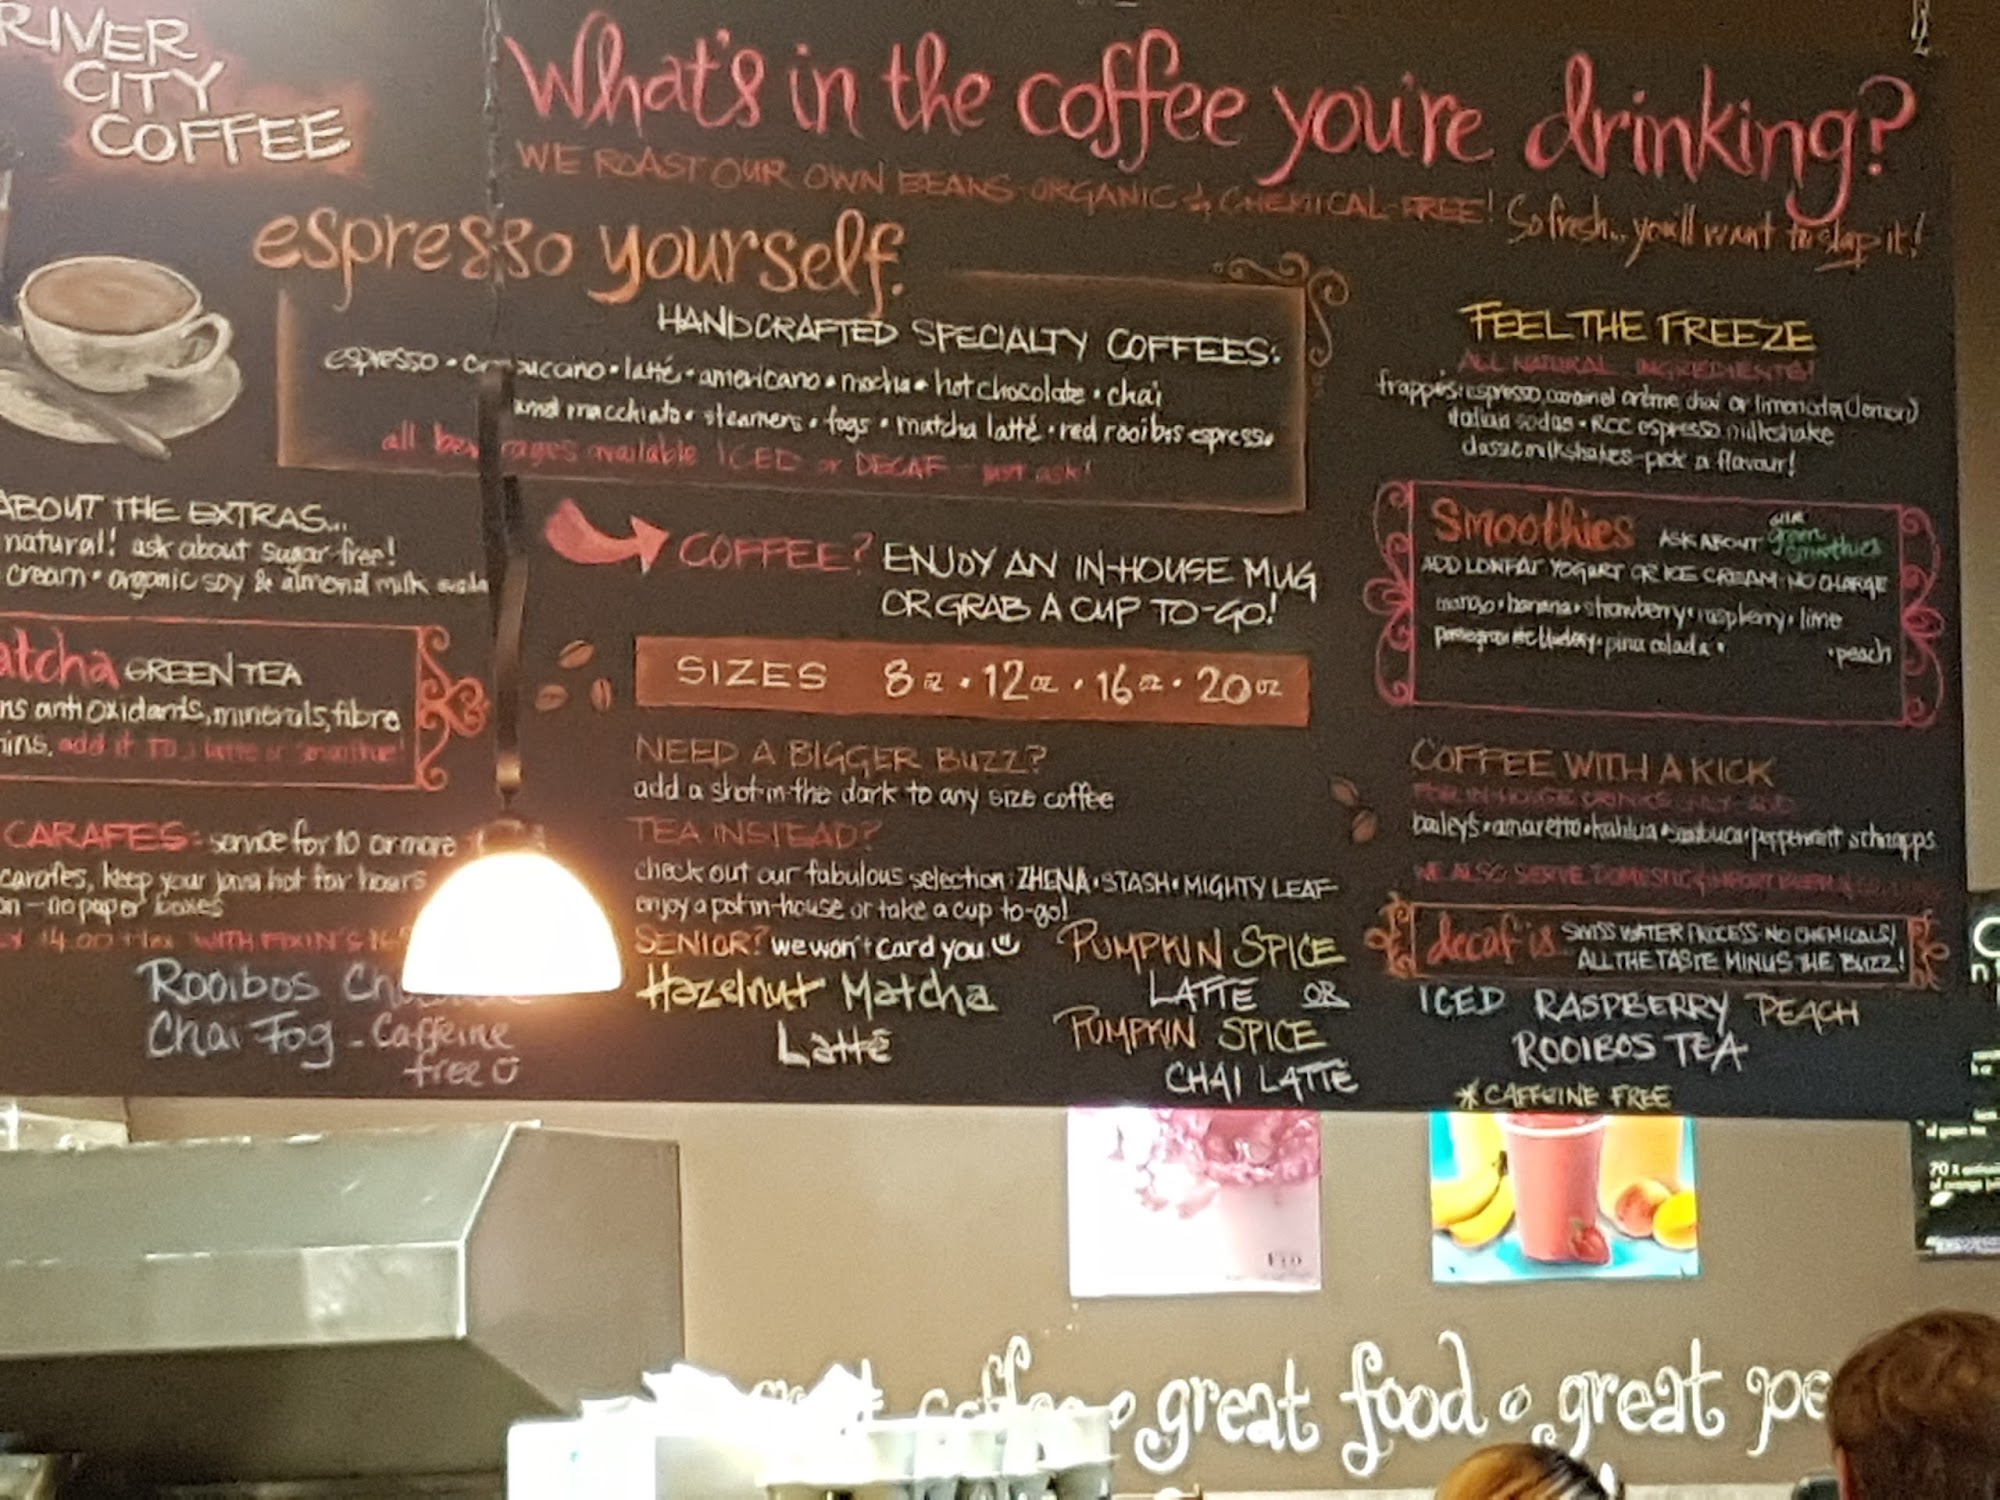 RIVER
CITY
COFFEE
What's in the coffee you're drinking?
WE ROAST OUR OWN BEANS-ORGANIC & CHEMICAL-FREE! So fresh... you'll want to slap it!
espresso yourself.
HANDCRAFTED SPECIALTY COFFEES:
espresso • latté • americano • mocha • hot chocolate • chai
and macchiato • steamers • fogs • matcha latté • red rooibos espresso
all beverages available ICED or DECAF - just ask!
ABOUT THE EXTRAS...
natural! ask about sugar-free!
cream • organic soy & almond milk
COFFEE? ENJOY AN IN-HOUSE MUG
OR GRAB A CUP TO-GO!
SIZES 8 oz • 12 oz • 16 oz • 20 oz
atcha GREEN TEA
ns antioxidants, minerals, fibre
ins, add it to a latte or smoothie!
NEED A BIGGER BUZZ?
add a shot-in-the dark to any size coffee
TEA INSTEAD?
check out our fabulous selection: ZHENA • STASH • MIGHTY LEAF
enjoy a pot in-house or take a cup to-go!
SENIOR? we won't card you
CARAFES - service for 10 or more
carafes, keep your java hot for hours
on - no paper boxes
WITH FIXIN'S
Rooibos
Chai Fog - Caffeine
free
Hazelnut Matcha
Latté
PUMPKIN SPICE
LATTE OR
PUMPKIN SPICE
CHAI LATTE
FEEL THE FREEZE
ALL NATURAL INGREDIENTS!
frappés: espresso, caramel crème, chai or limonata (lemon)
italian sodas • RCC espresso milkshake
classic milkshakes-pick a flavour!
Smoothies ASK ABOUT our green smoothies
ADD LOWFAT YOGURT OR ICE CREAM-NO CHARGE
mango • banana • strawberry • raspberry • lime
pina colada • • peach
COFFEE WITH A KICK
FOR IN-HOUSE DRINKS ONLY ADD
bailey's • amaretto • kahlua • sambuca • peppermint schnapps
WE ALSO SERVE DOMESTIC & IMPORT
decaf is SWISS WATER PROCESS-NO CHEMICALS!
ALL THE TASTE MINUS THE BUZZ!
ICED RASPBERRY PEACH
ROOIBOS TEA
*CAFFEINE FREE
coffee • great food • great pe